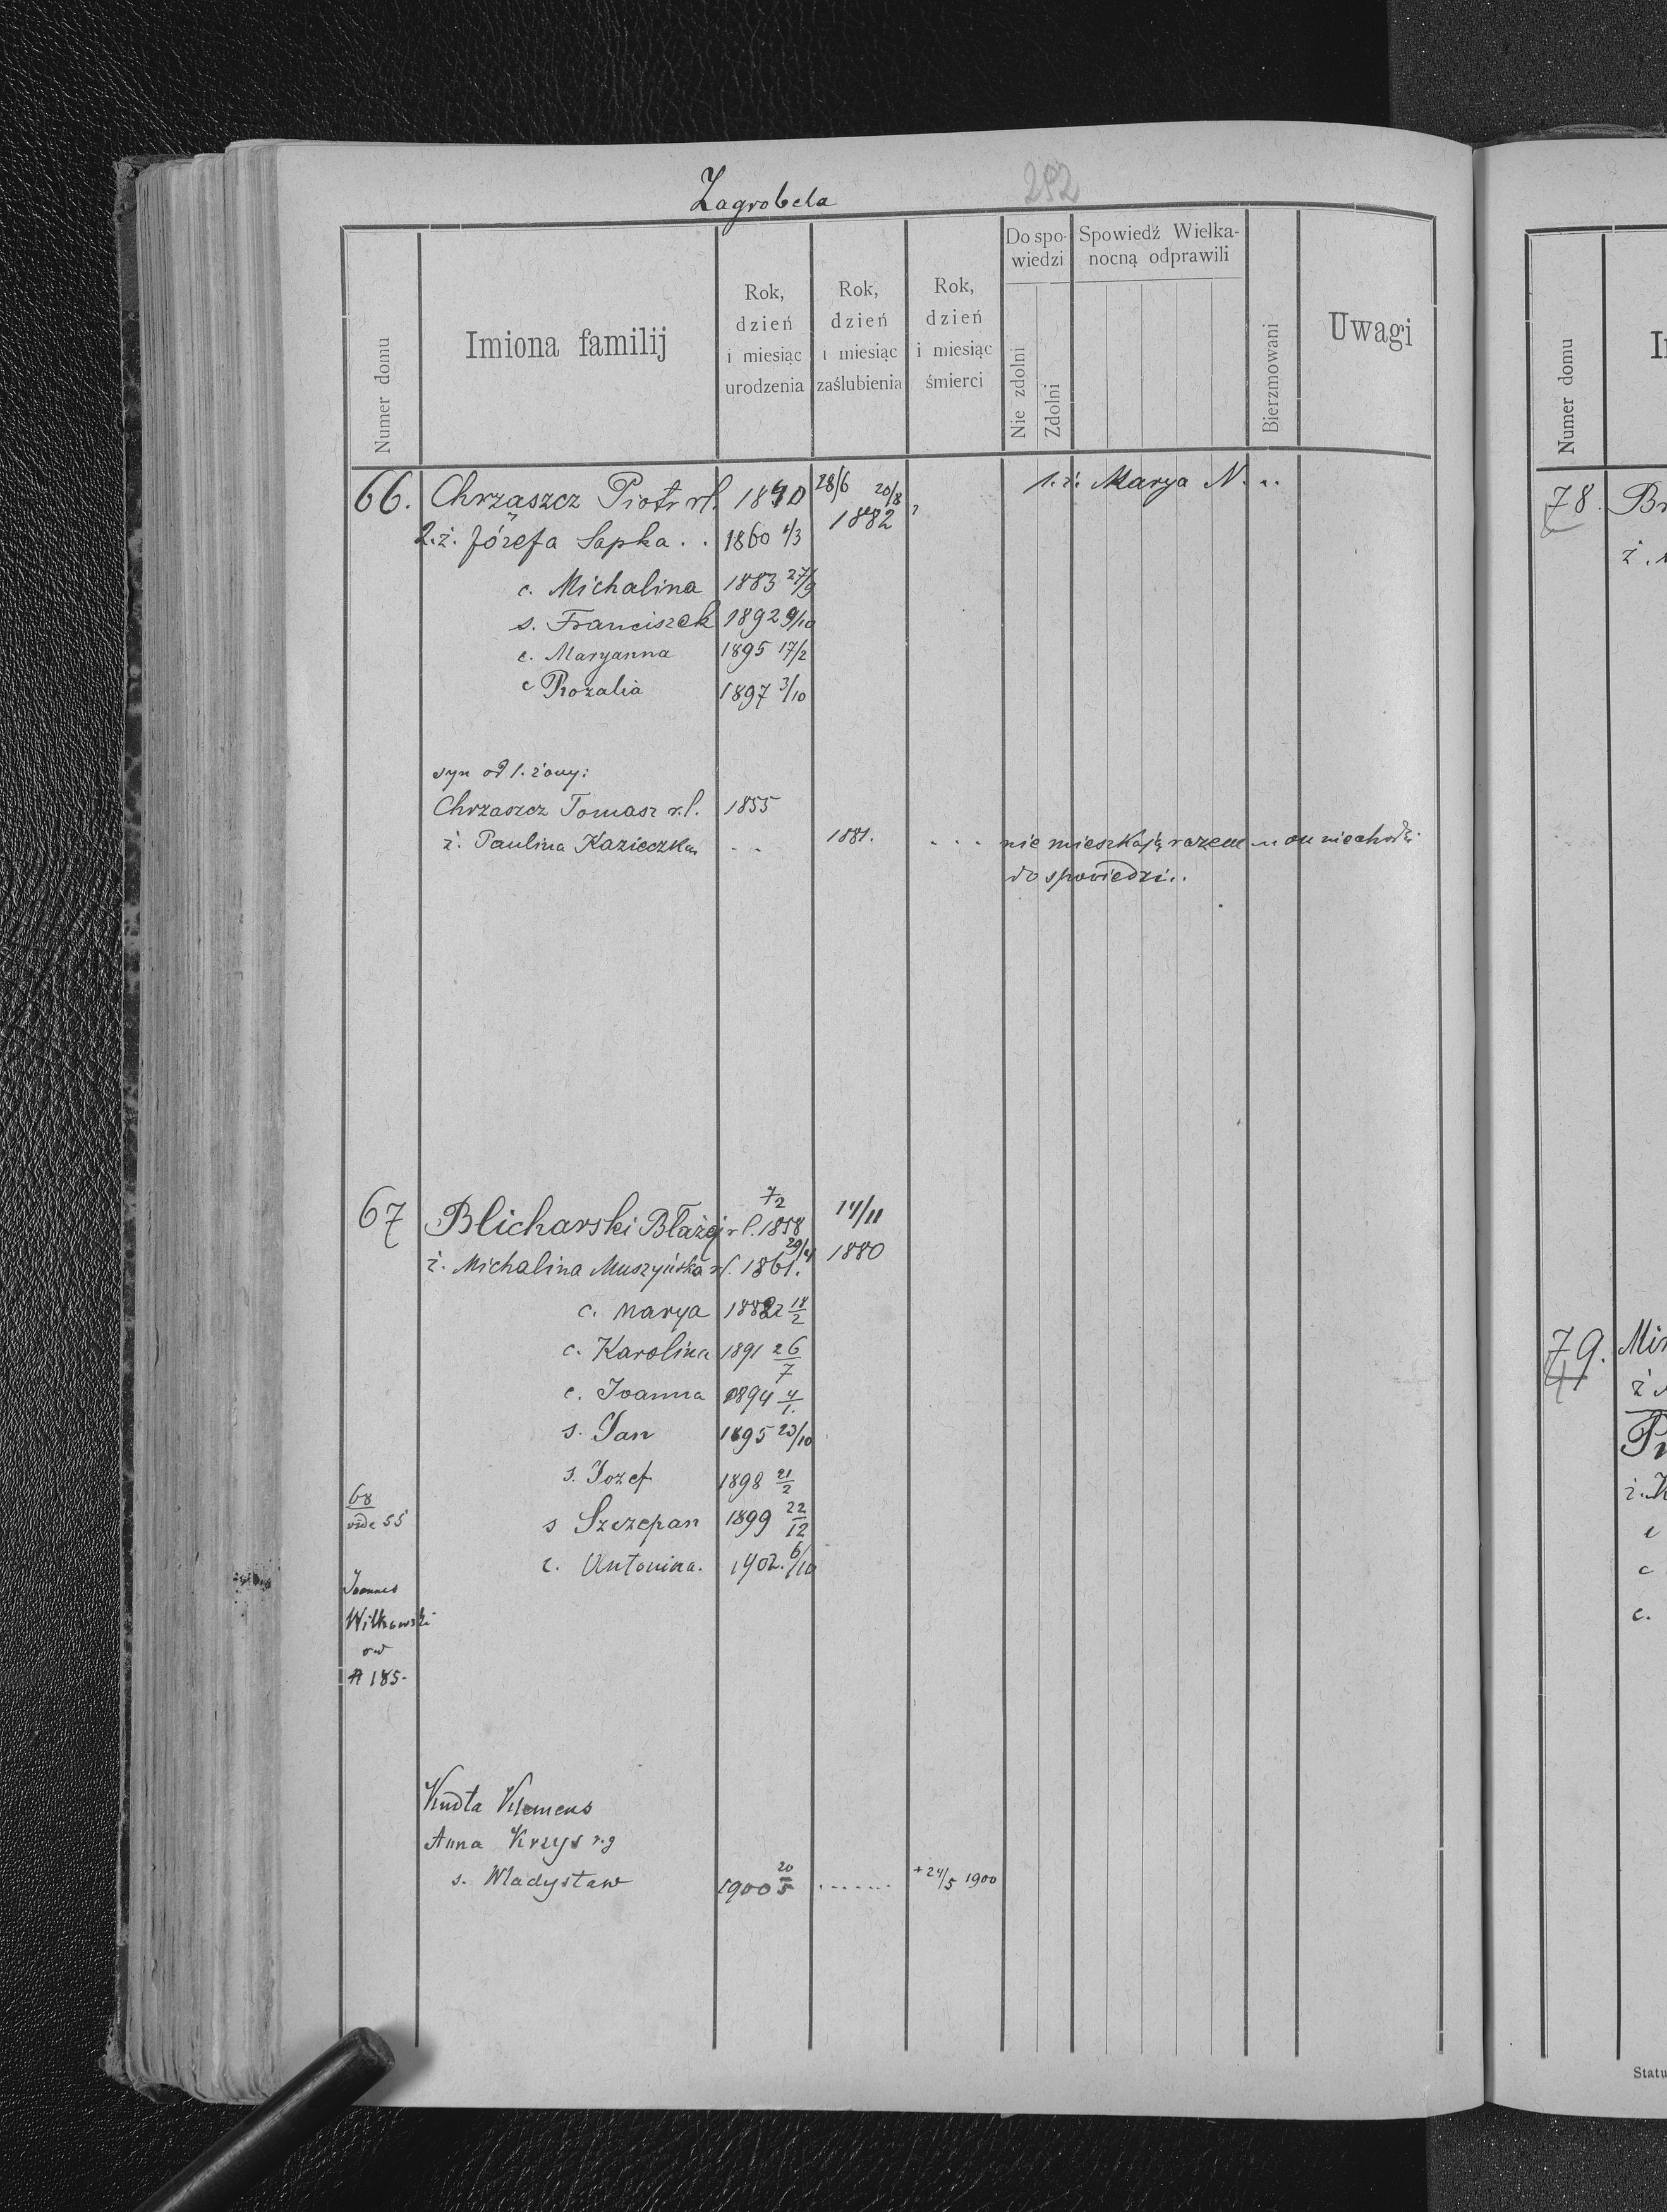 Zagrobela 252
Numer domu
Imiona familij
Rok, dzień i miesiąc urodzenia
Rok, dzień i miesiąc zaślubienia
Rok, dzień i miesiąc śmierci
Do spowiedzi
Nie zdolni
Zdolni
Spowiedź Wielkanocną odprawili
Bierzmowani
Uwagi
66. Chrząszcz Piotr rl. 1840 28/6 20/8 1882 ? 1. ż. Marya N...
2. ż. Józefa Sapka .. 1860 4/3
c. Michalina 1883 27/9
s. Franciszek 1892 9/10
c. Maryanna 1895 17/2
c Rozalia 1897 3/10
syn od 1. żony:
Chrzaszcz Tomasz r.l. 1855
ż. Paulina Kazieczko .. 1881. ... nie mieszkają razem ... on niechodzi
do spowiedzi..
67 Blicharski Błażej rl. 1858 7/2 14/11
ż. Michalina Muszyńska rl. 1861. 29/4 1880
c. Marya 1882 18/2
c. Karolina 1891 26/7
c. Joanna 1894 4/1.
s. Jan 1895 23/10
s. Jozef 1898 21/2
68
vide 55
s Szczepan 1899 22/12
c. Antonina. 1902. 6/10
Joannes
Witkowski
185.
Kudła Klemens
Anna Krzys r.g
s. Władysław 1900 20/5 ....... + 24/5 1900
Numer domu
78. Br
ż.
79. Mir
ż
ż. K
c
c.
Statu